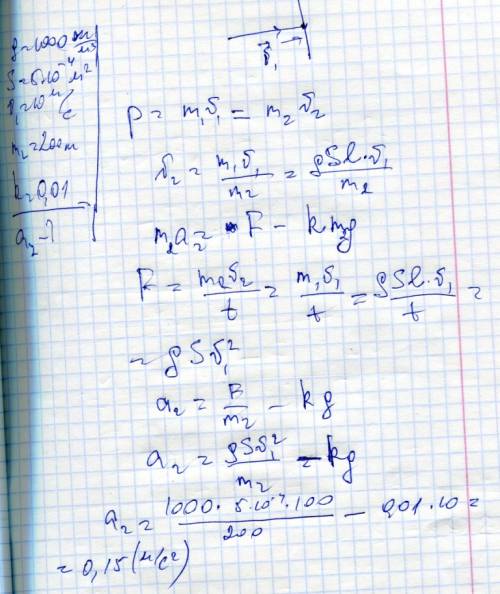 ρ=1000 кг/м³
S=6·10⁻⁴ м²
v₁=10 м/с
m₂=200
k=0,01
a₂-?
v₁
p = m₁v₁ = m₂v₂
v₂ = m₁v₁/m₂ = ρSl·v₁/m₂
m₂a₂= F - km₂g
F = m₂v₂/t = m₁v₁/t = ρSl·v₁/t =
= ρSv₁²
a₂ = F/m₂ - kg
a₂ = ρSv₁²/m₂ - kg
a₂ = 1000·5·10⁻⁴·100/200 - 0,01·10 =
= 0,15 (м/с²)